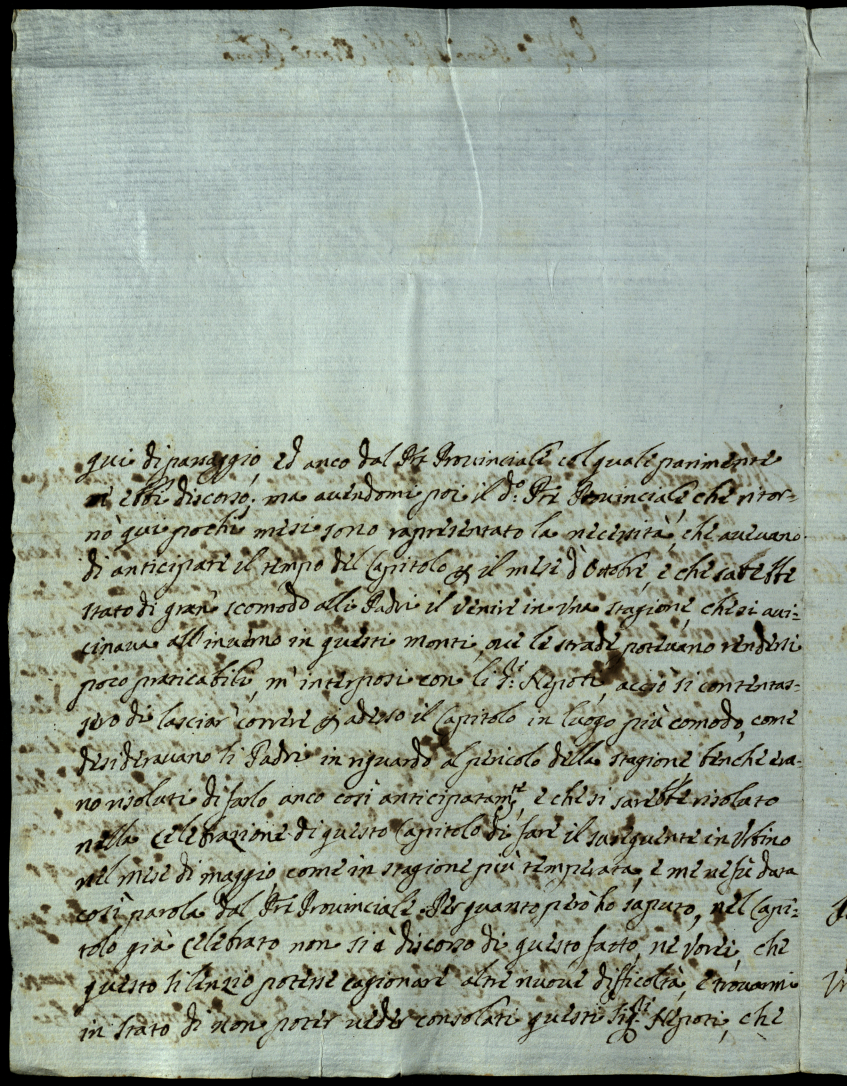 qui di passaggio, ed anco dal Pre Provinciale col quale parimente
ne ebbi discorso. ma avendomi poi il do: Pre Provinciale, che ritor-
nò qui pochi mesi sono rapresentato la necessità, che avevano
di anticipare il tempo del Capitolo il mese d'Ottobre, e che sarebbe
stato di gran scomodo alli Padri il venire in una stagione, che si avi-
cinava all'inverno in questi monti, ove le strade potevano rendersi
poco praticabili, m'interposi con li Sri Nepoti, acciò si contentas-
sero di lasciar correre adesso il Capitolo in luogo più comodo, come
desideravano li Padri in riguardo al pericolo della stagione benche era-
no risoluti di farlo anco così anticipatamte, e che si sarebbe risolato
nella Celebrazione di questo Capitolo di fare il susseguente in Urbino
nel mese di maggio, come in stagione più temperata, e me ne fù data
così parola dal Pre Provinciale. Per quanto però ho saputo, nel Capi-
tolo già celebrato non si è discorso di questo fatto, ne vorei, che
questo silenzio potesse cagionare altre nuove difficoltà, e trovarmi
in stato di non poter veder consolati questi Sigri Nepoti, che